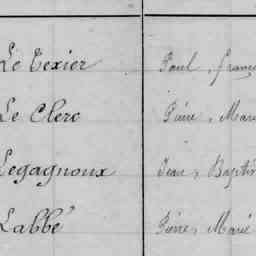 Le Texier Paul, Franç
Le Clerc Pierre, Marie
Legagnoux Jean, Baptis
Labbé Pierre, Marie